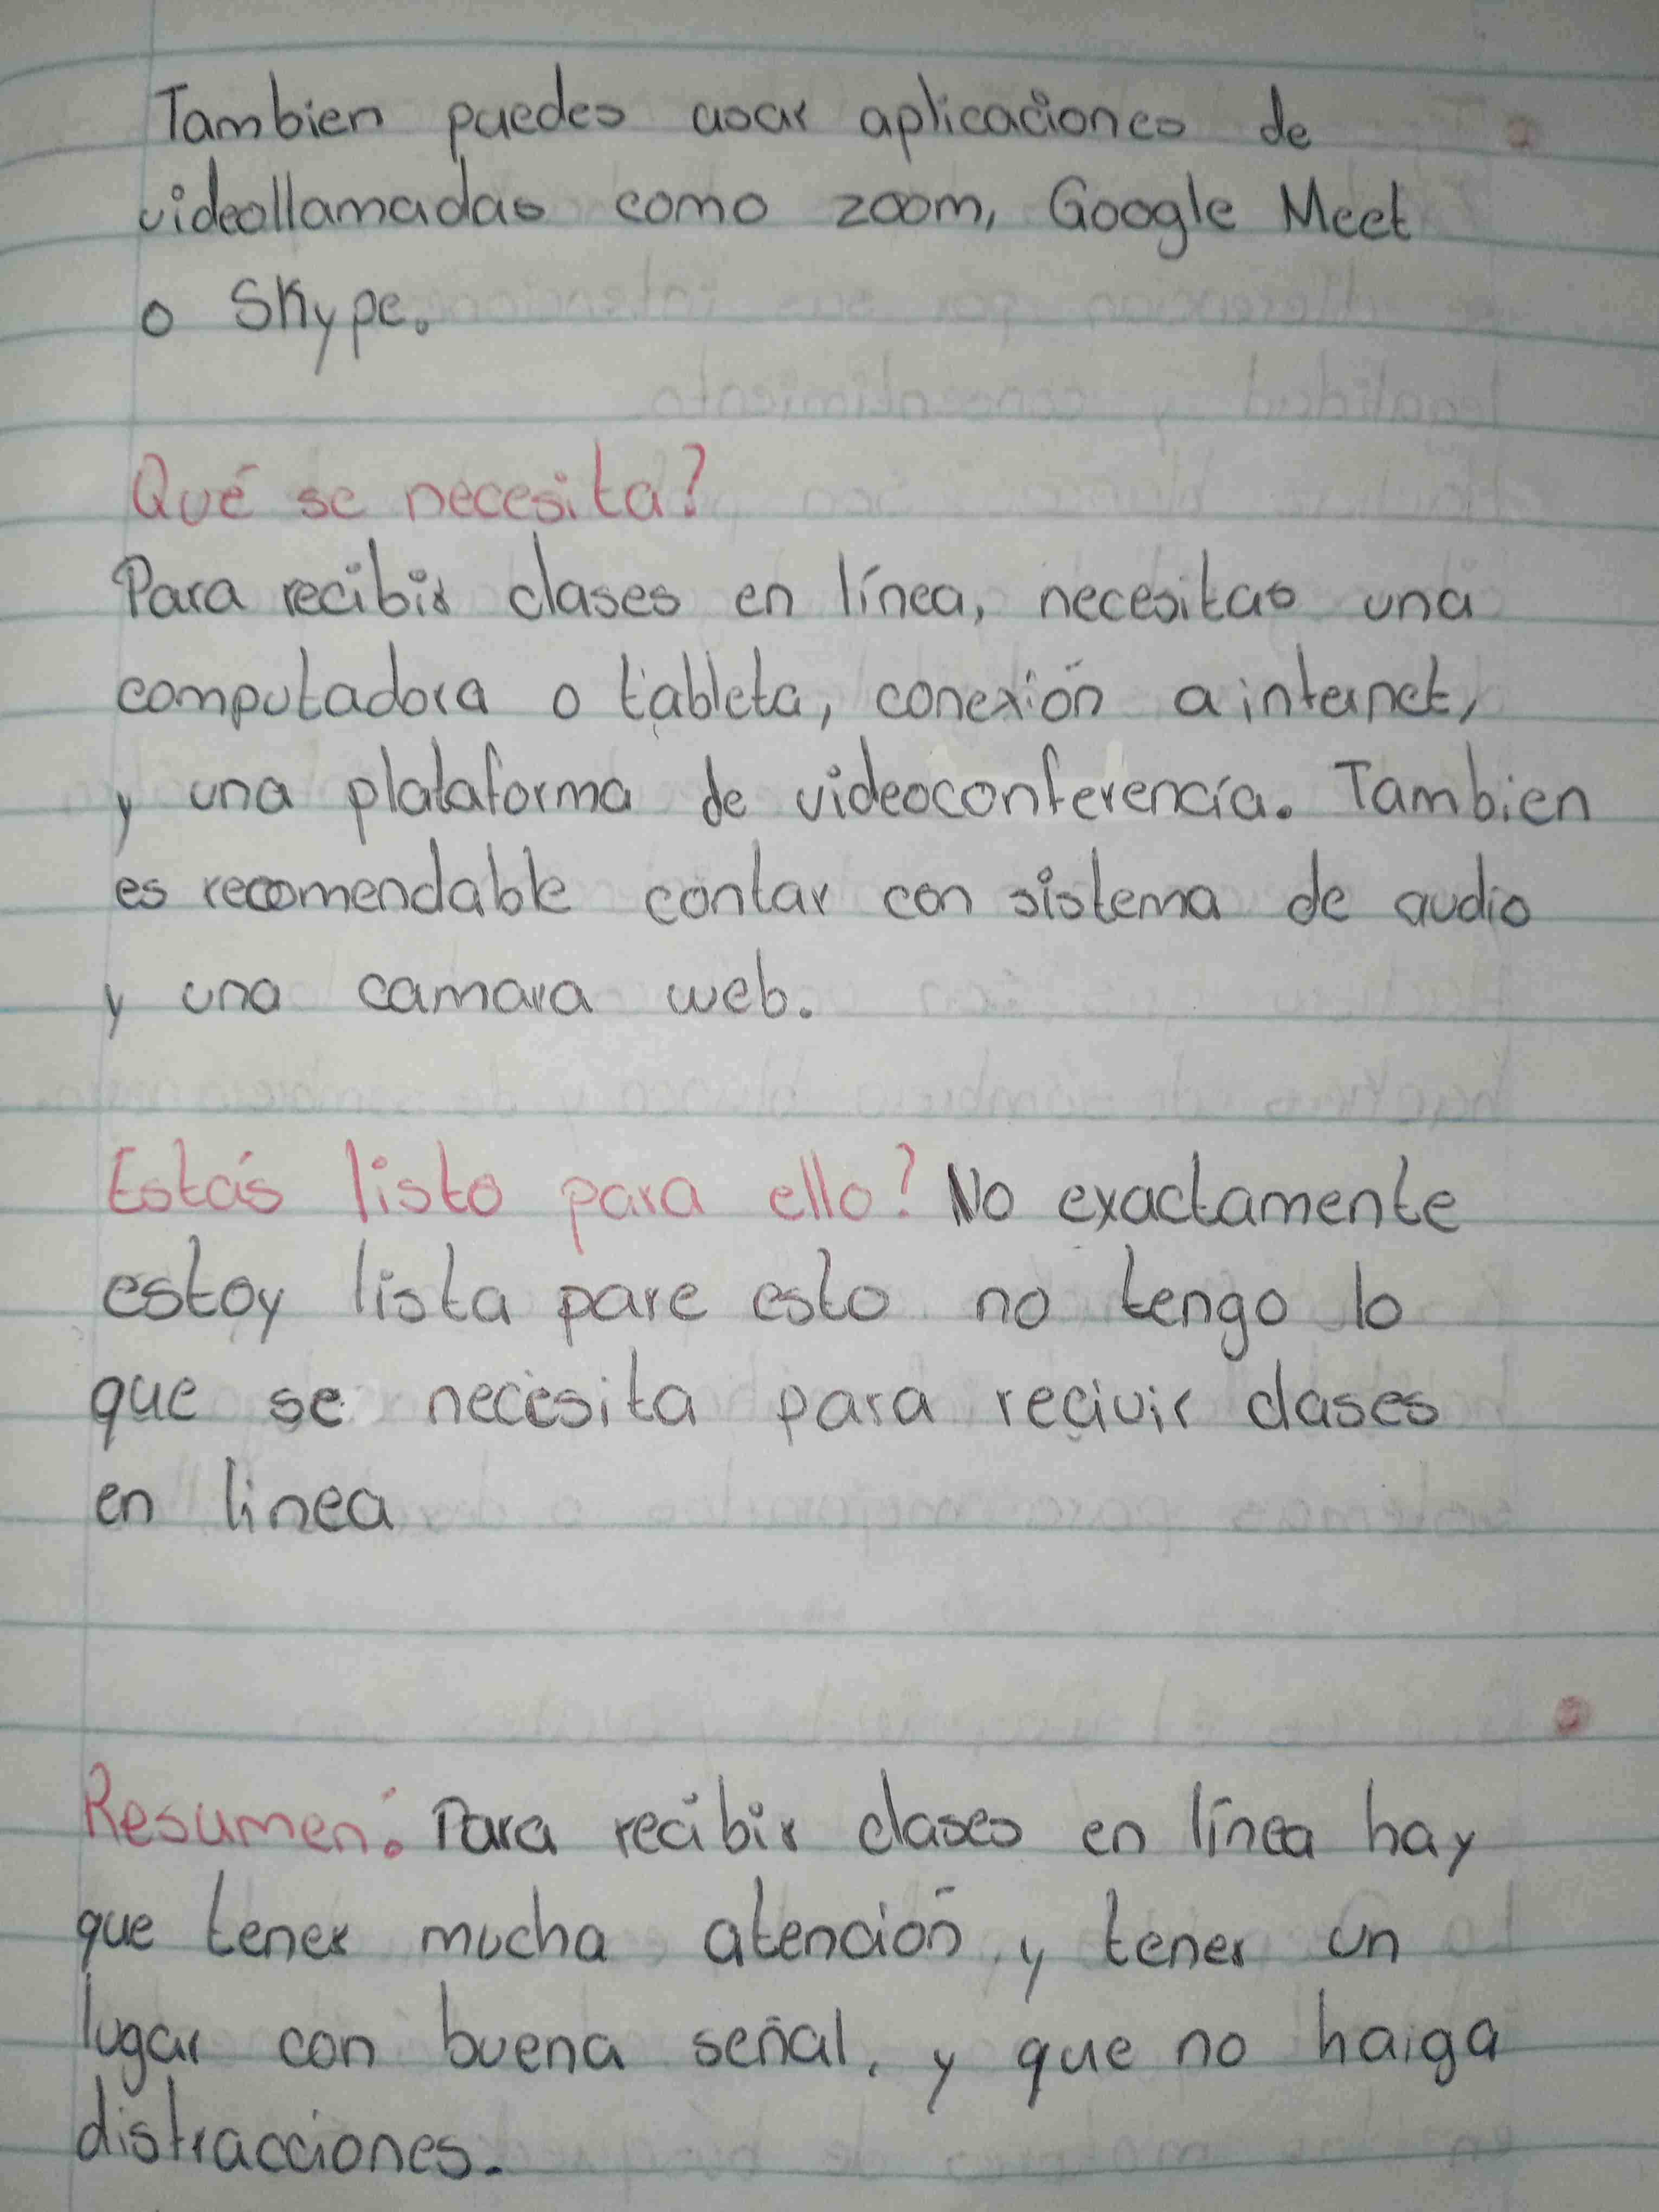 Tambien puedes usar aplicaciones de
videollamadas como zoom, Google Meet
o Skype.
Qué se necesita?
Para recibir clases en línea, necesitas una
computadora o tableta, conexión a internet,
y una plataforma de videoconferencia. Tambien
es recomendable contar con sistema de audio
y una camara web.
Estás listo para ello? No exactamente
estoy lista pare esto no tengo lo
que se necesita para recivir clases
en linea
Resumen: Para recibir clases en línea hay
que tener mucha atención y tener un
lugar con buena señal, y que no haiga
distracciones.